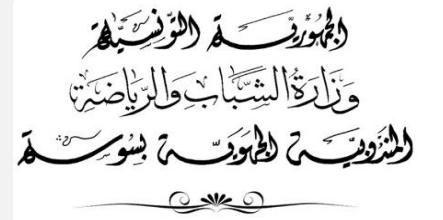 الجمهوريّة التونسيّة
وَزَارَةُ الشَّبَابِ وَالرِّيَاضَةِ
المندوبيّة الجهويّة بسوسة